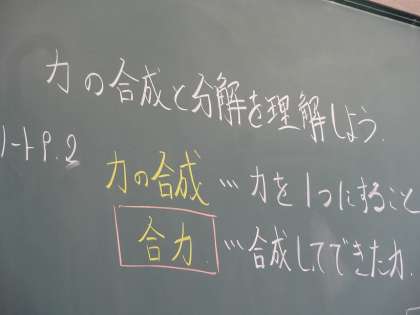 力の合成と分解を理解しよう.
ノートP.2
力の合成…力を1つにすること
合力…合成してできた力.